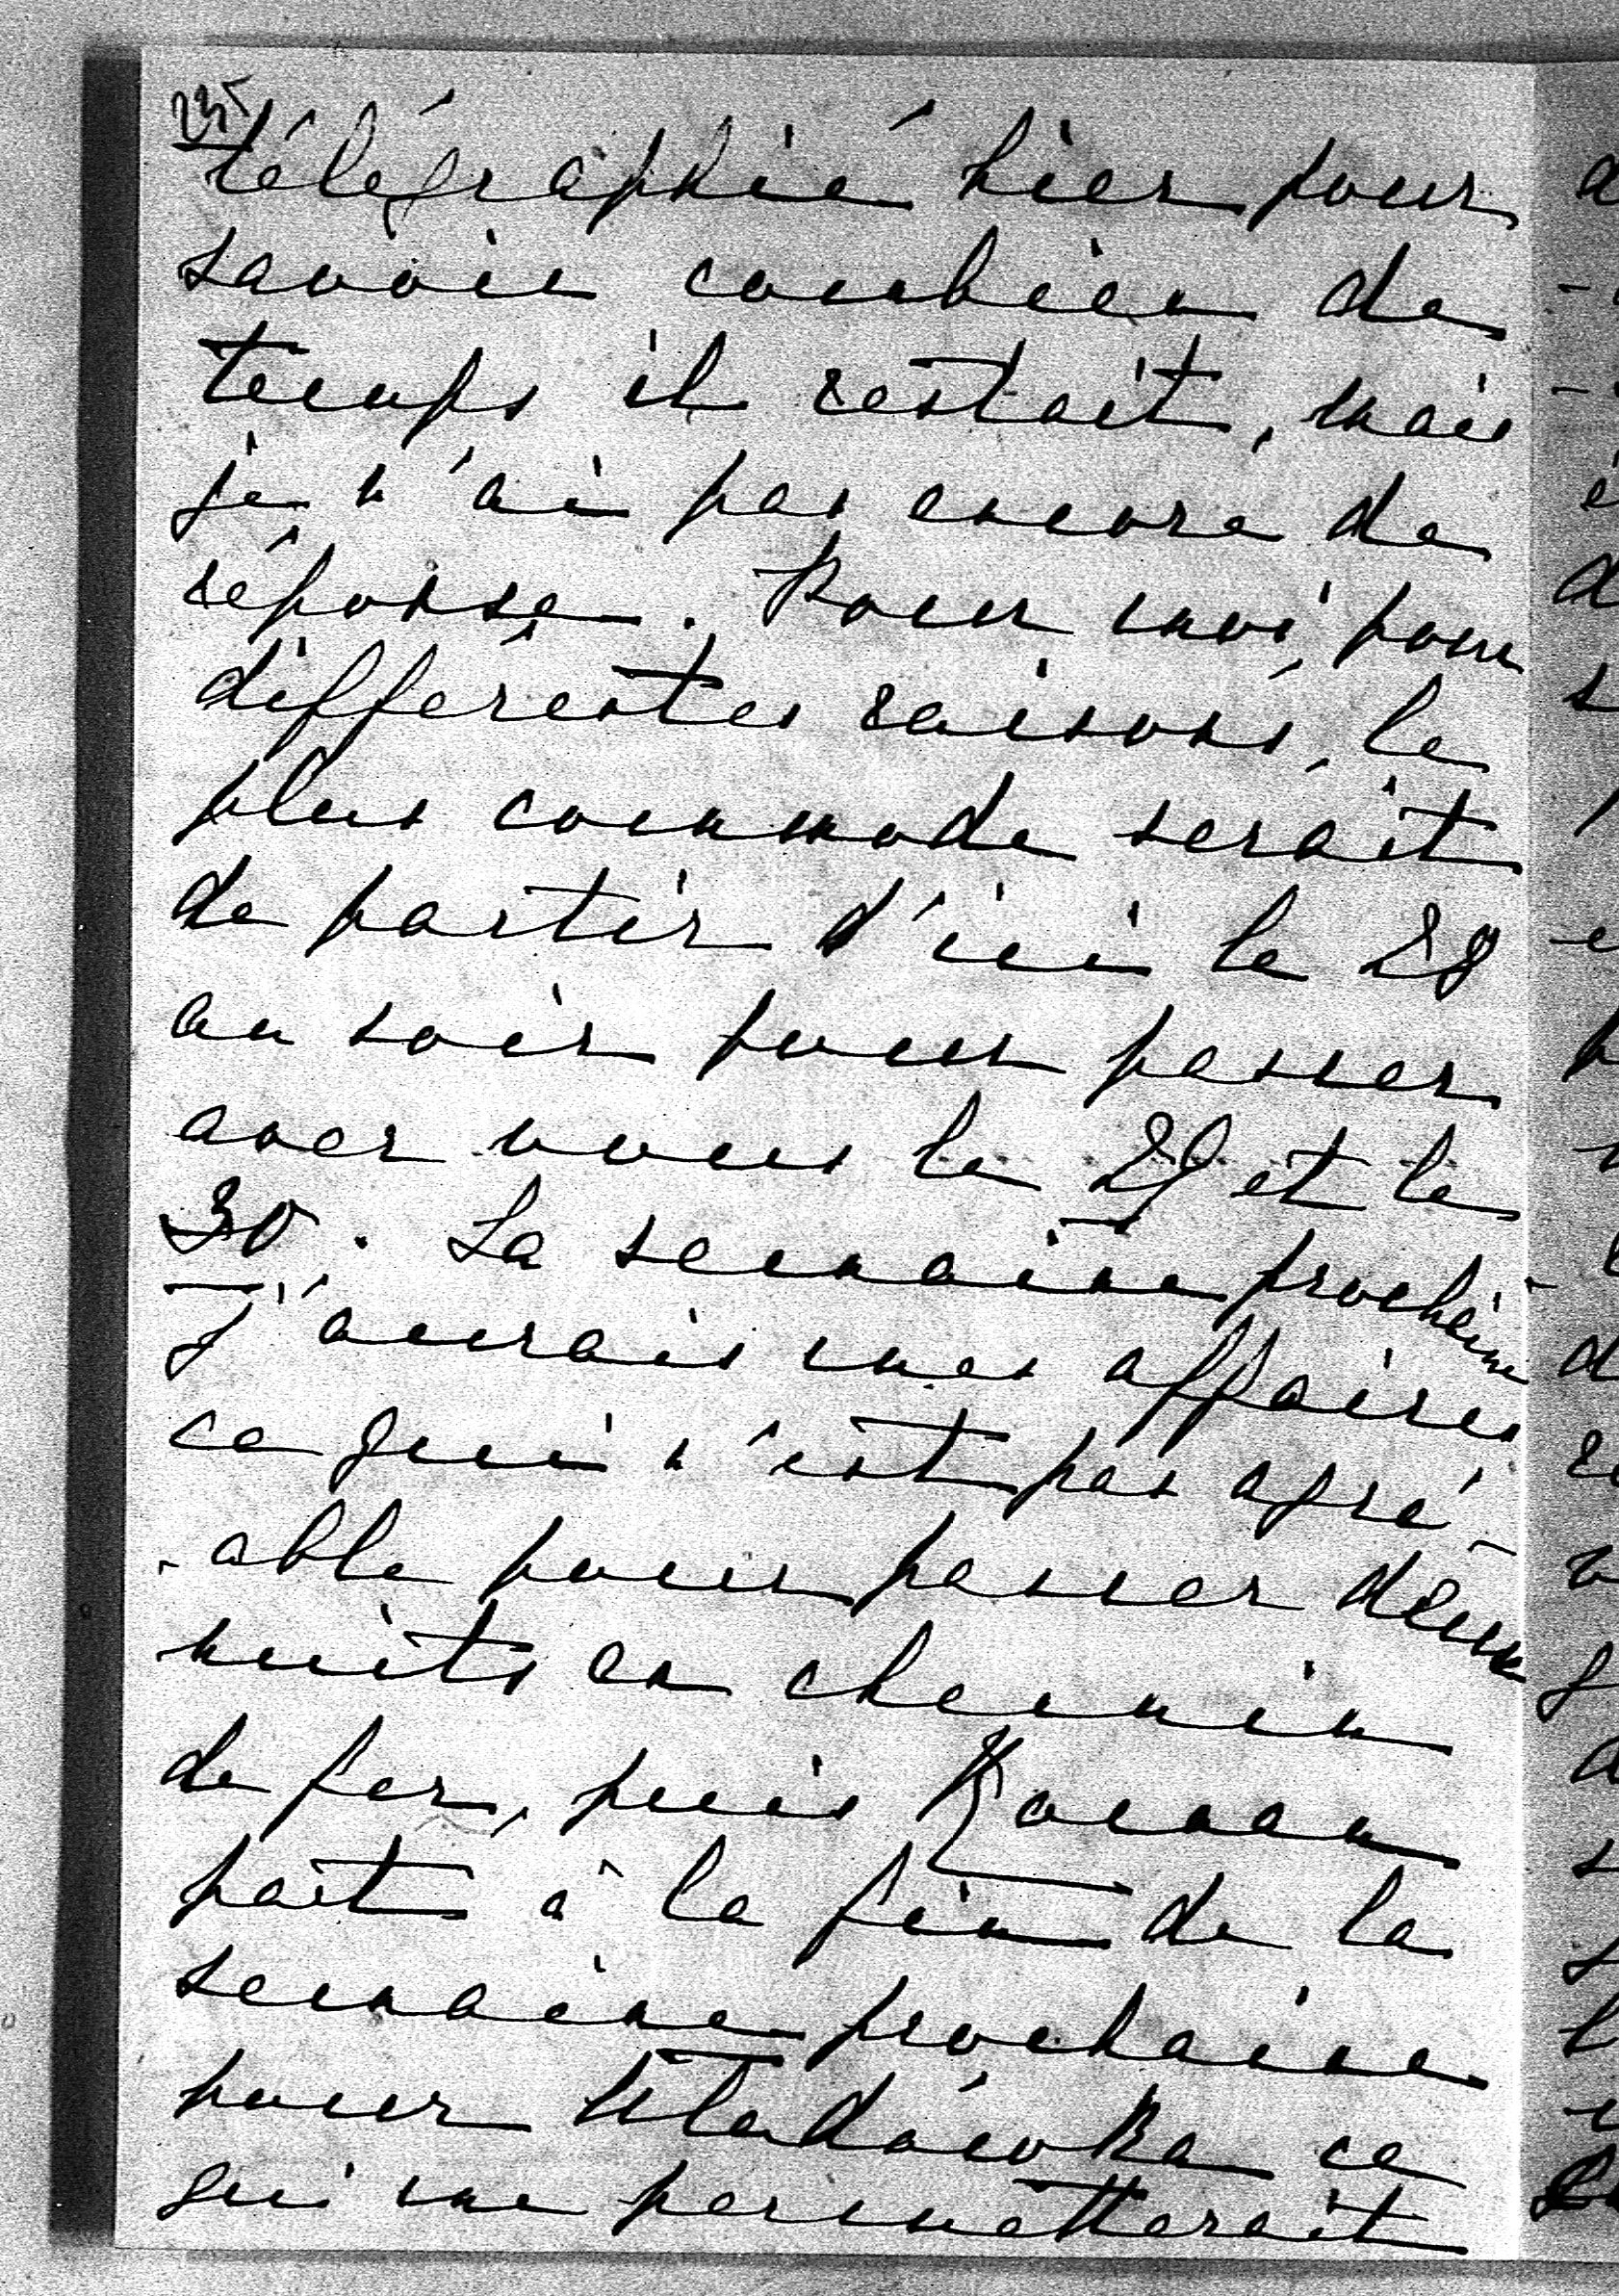 235
télégraphié hier pour
savoir combien de
temps il restait, mais
je n'ai pas encore de
réponse. Pour moi, pour
différentes raisons, le
plus commode serait
de partir d'ici le 28
au soir pour passer
avec vous le 29 et le
30. La semaine prochaine
j'aurais mes affaires
ce qui n'est pas agré-
-able pour passer deux
nuits en chemin
de fer, puis Roman
part à la fin de la
semaine prochaine
pour Uladowka ce
qui me permetterait